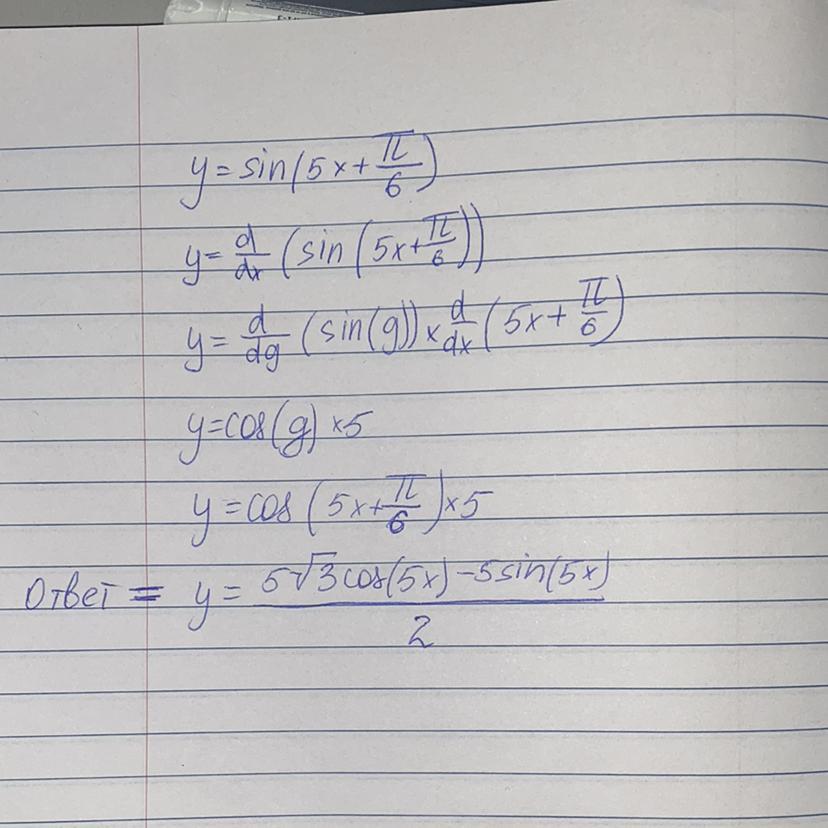 y = sin(5x + π/6)
y = d/dx (sin (5x + π/6))
y = d/dg (sin(g)) × d/dx (5x + π/6)
y = cos(g) × 5
y = cos (5x + π/6) × 5
Ответ = y = (5√3 cos(5x) - 5 sin(5x))/2